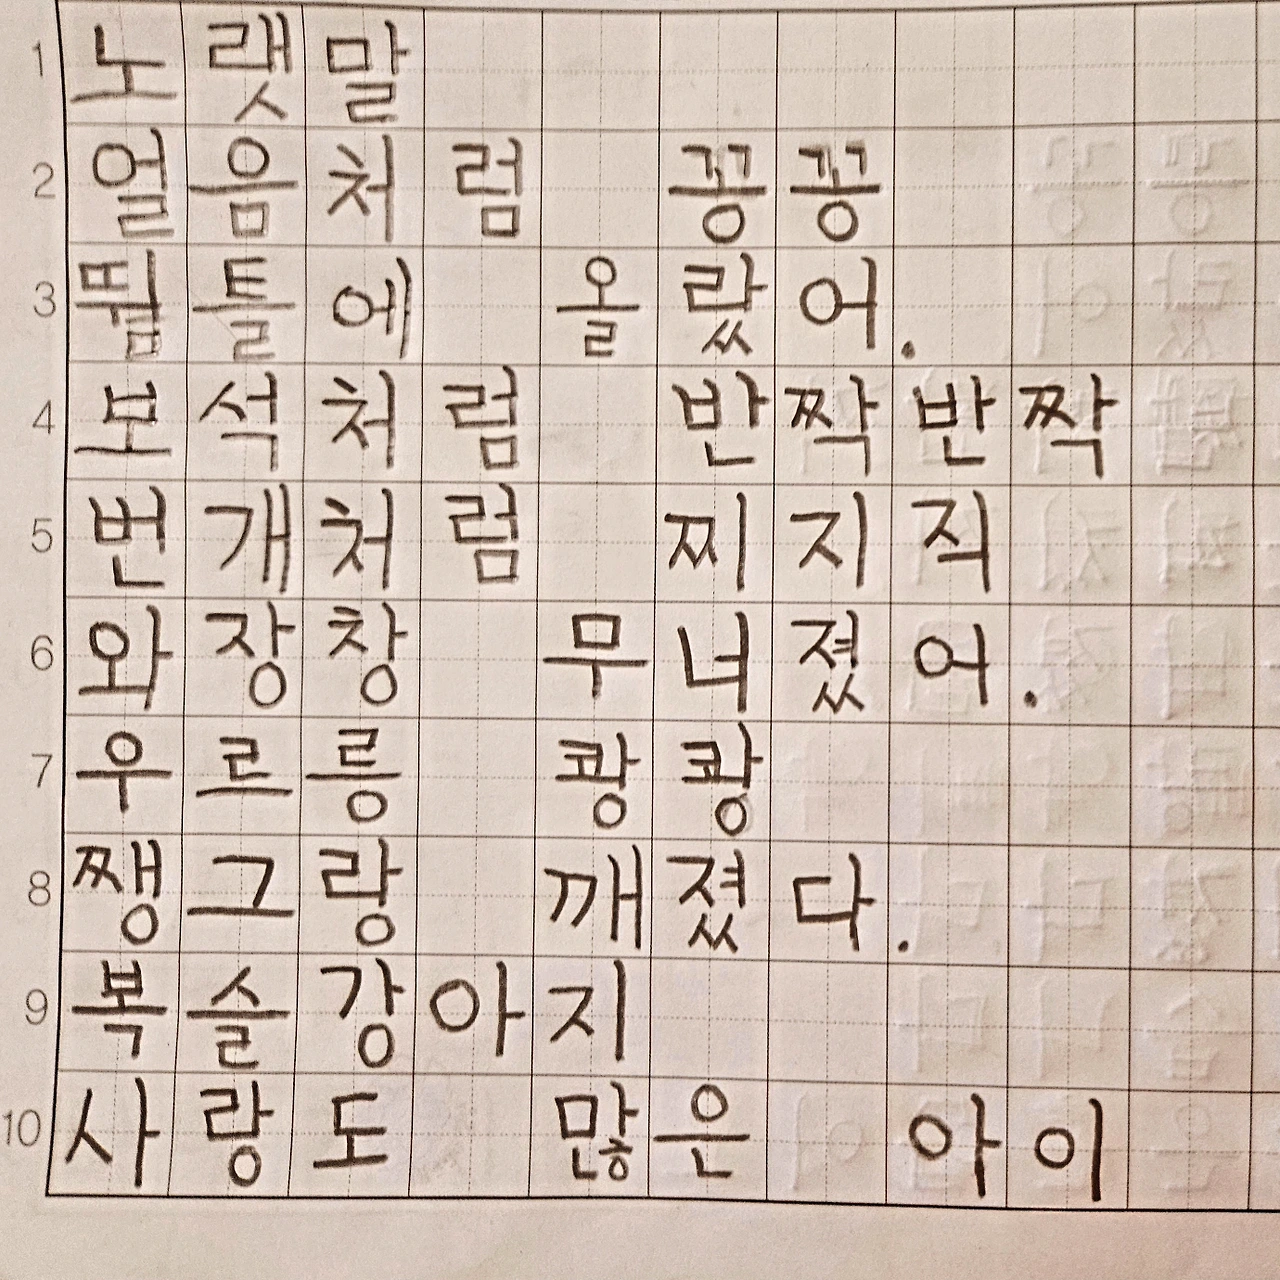 1 노랫말
2 얼음처럼 꽁꽁
3 뜀틀에 올랐어.
4 보석처럼 반짝반짝
5 번개처럼 찌지직
6 와장창 무너졌어.
7 우르릉 쾅쾅
8 쨍그랑 깨졌다.
9 복슬강아지
10 사랑도 많은 아이